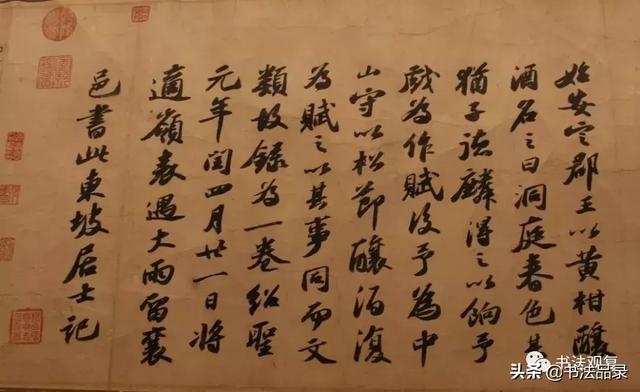 始安定郡王以黃柑釀
酒名之曰洞庭春色其
猶子德麟得之以餉予
戲為作賦後予為中
山守以松節釀酒復
為賦之以其事同而文
類故錄為一卷紹聖
元年閏四月廿一日將
適嶺表遇大雨留襄
邑書此東坡居士記
书法观复
头条 @书法品录